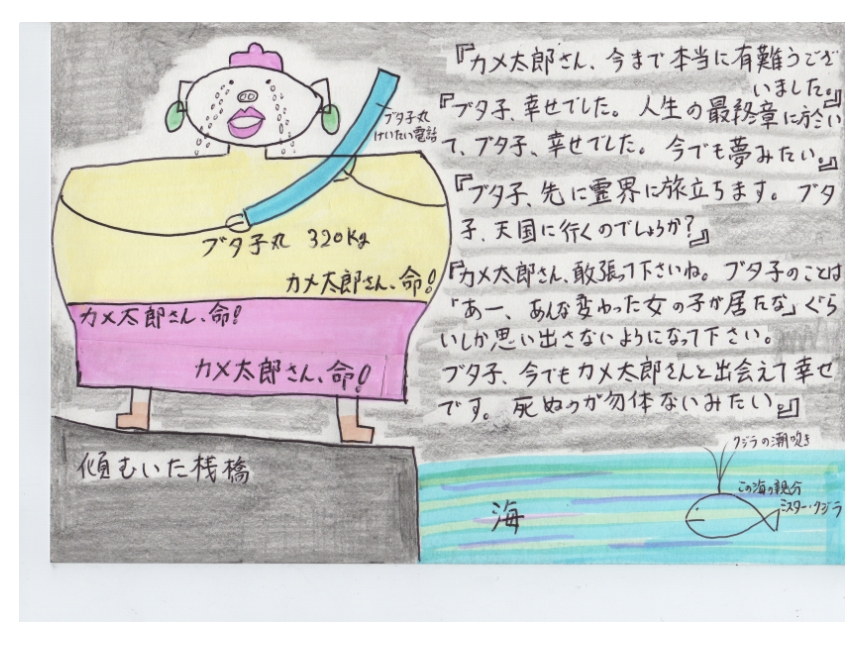 『カメ太郎さん、今まで本当に有難うござ
いました。』
『ブタ子、幸せでした。人生の最終章に於い
て、ブタ子、幸せでした。今でも夢みたい。』
『ブタ子、先に霊界に旅立ちます。ブタ
子、天国に行くのでしょうか?』
『カメ太郎さん、敢張って下さいね。ブタ子のことは
「あー、あんな変わった女の子が居たな」ぐら
いしか思い出さないようになって下さい。
ブタ子、今でもカメ太郎さんと出会えて幸せ
です。死ぬのが勿体ないみたい』
ブタ子丸
けいたい電話
ブタ子丸 320Kg
カメ太郎さん、命!
カメ太郎さん、命!
カメ太郎さん、命!
傾むいた桟橋
海
クジラの潮吹き
この海の親分
ミスター・クジラ